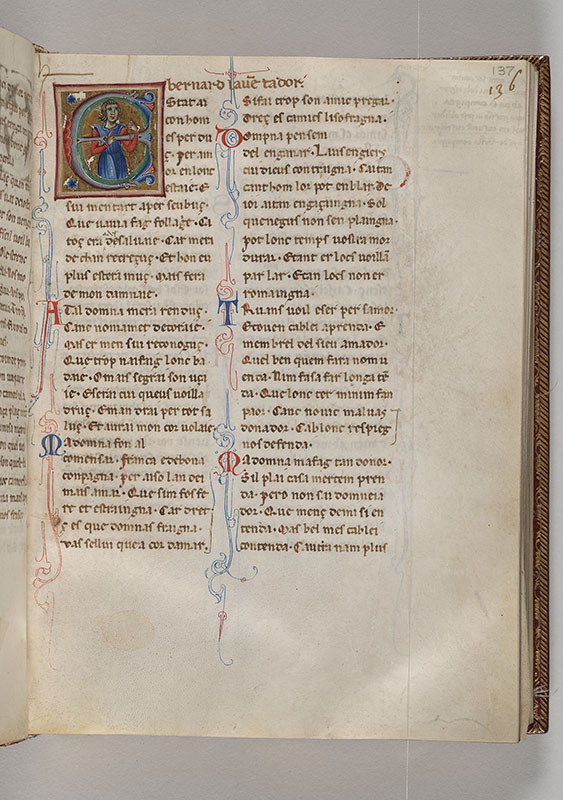 137
136
bernard dauẽ tador.
Stat ai
con hom
esper du
ç. per am
or en lonc
estaie. E
sui mentart aper seubuç.
Que iauia fag follage. Ca
toç era desaluaie. Car meti
de chan recreçuç. Et hon eu
plus estera muç. mais fera
de mon damnaie.
A tal domna mera renduç.
Canc nomamet decoraie.
mas er men sui reconoguç.
Que trop nai faig lonc ba
daie. Omais segrai son uça
ie. E serai cui queus uoilla
druç. Eman drai per tot sa
luç. Et aurai mon cor uolaie
Ma domna fon al
comensar. franca e de bona
conpagna. per aiso lan dei
mais amar. Que sim fos fe
re et estraingna. Car dreit
ç es que domnas fragna.
uas sellui que a cor damar.
Si fai trop son amic pregar.
dreç es camics li sofragna.
Dompna pensem
del enginar. Lausengiers
cui dieus contragna. Caitan
cant hom lor pot enblar. de
ior aitan engaçaingna. Sol
que negus non sen plaingna.
pot lonc temps uostra mor
durar. Et ant er locs uoilla
par lar. Et an locs non er
romaingna.
Truans uoil eser per samor.
Et ouen cab lei aprenta. E
membrel del sieu amador.
Quel ben quem fara nom u
enda. Nim fasa far longa tẽ
da. Que lonc ter minim fan
paor. Canc no uic maluas
donador. Cab lonc respieg
nos defenda.
Ma domna mafag tan donor.
Sil plai casa mercem pren
da. pero non sui domneia
dor. Que menç dem si en
tenda. Mas bel mes cab lei
contenda. Cautra nam plus